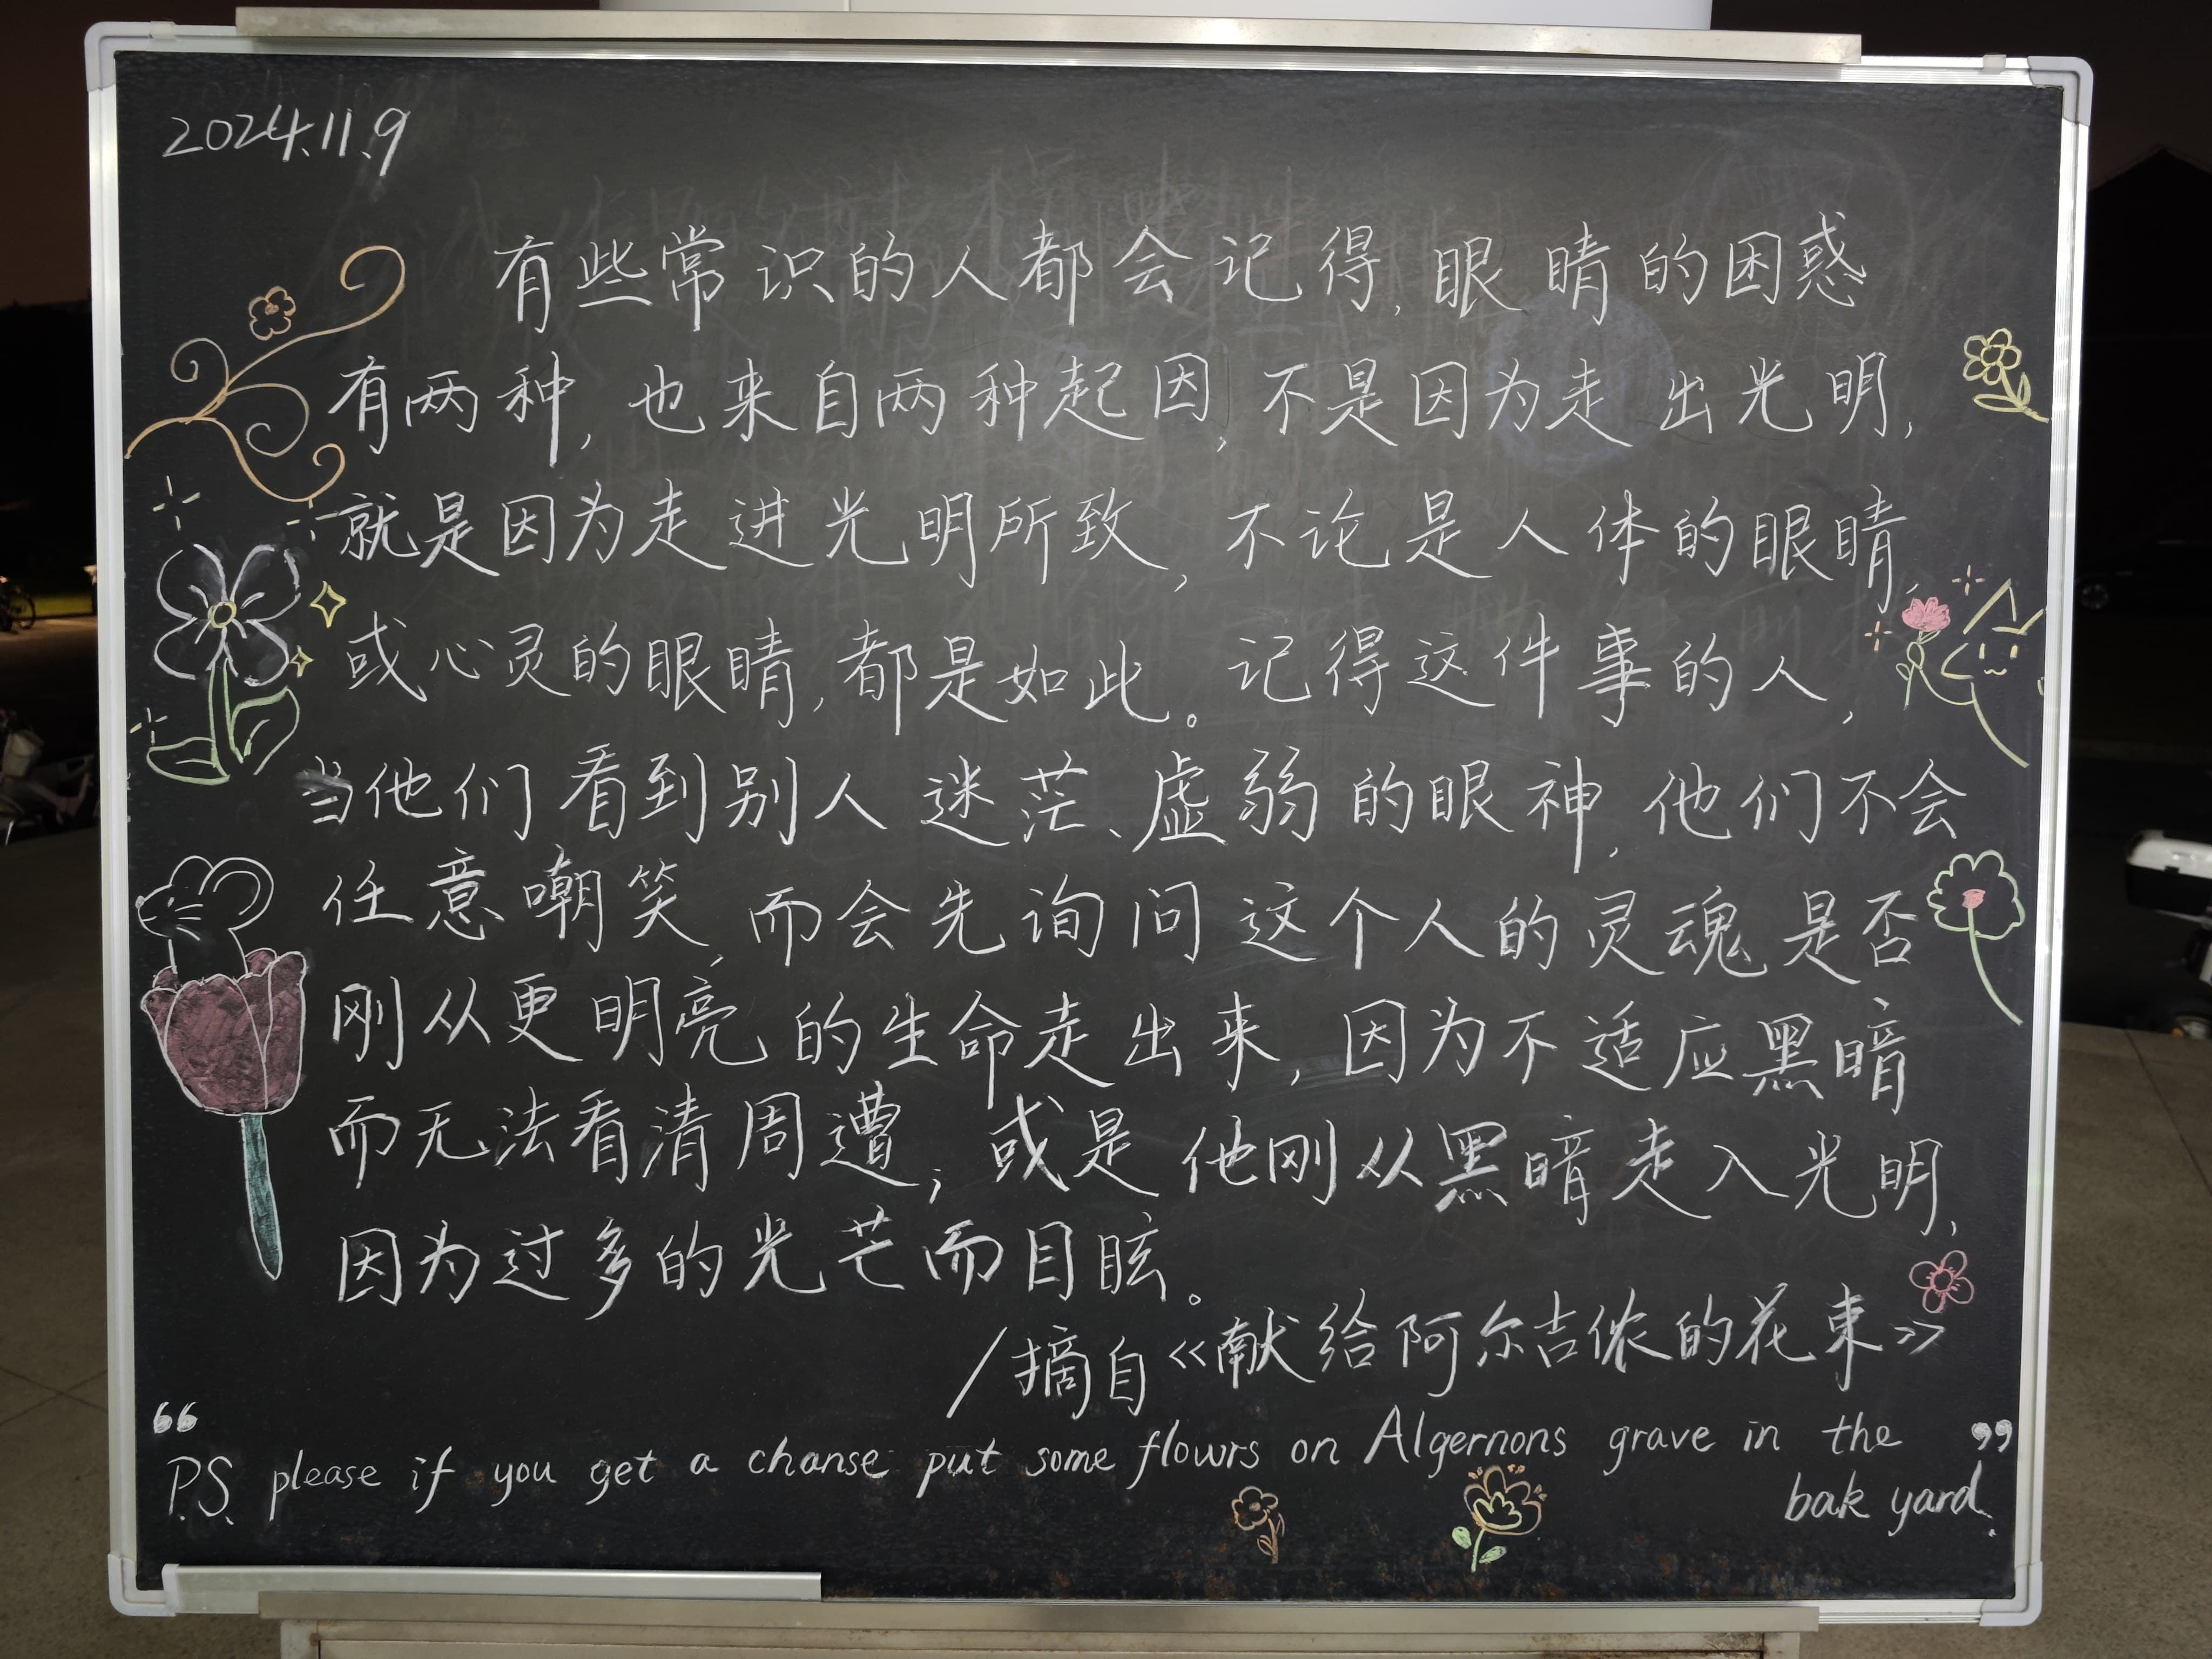 2024.11.9
有些常识的人都会记得,眼睛的困惑
有两种,也来自两种起因,不是因为走出光明,
就是因为走进光明所致,不论是人体的眼睛,
或心灵的眼睛,都是如此。记得这件事的人,
当他们看到别人迷茫、虚弱的眼神,他们不会
任意嘲笑,而会先询问这个人的灵魂是否
刚从更明亮的生命走出来,因为不适应黑暗
而无法看清周遭;或是他刚从黑暗走入光明,
因为过多的光芒而目眩。
/摘自《献给阿尔吉侬的花束》
“P.S. please if you get a chanse put some flowrs on Algernons grave in the
bak yard.”